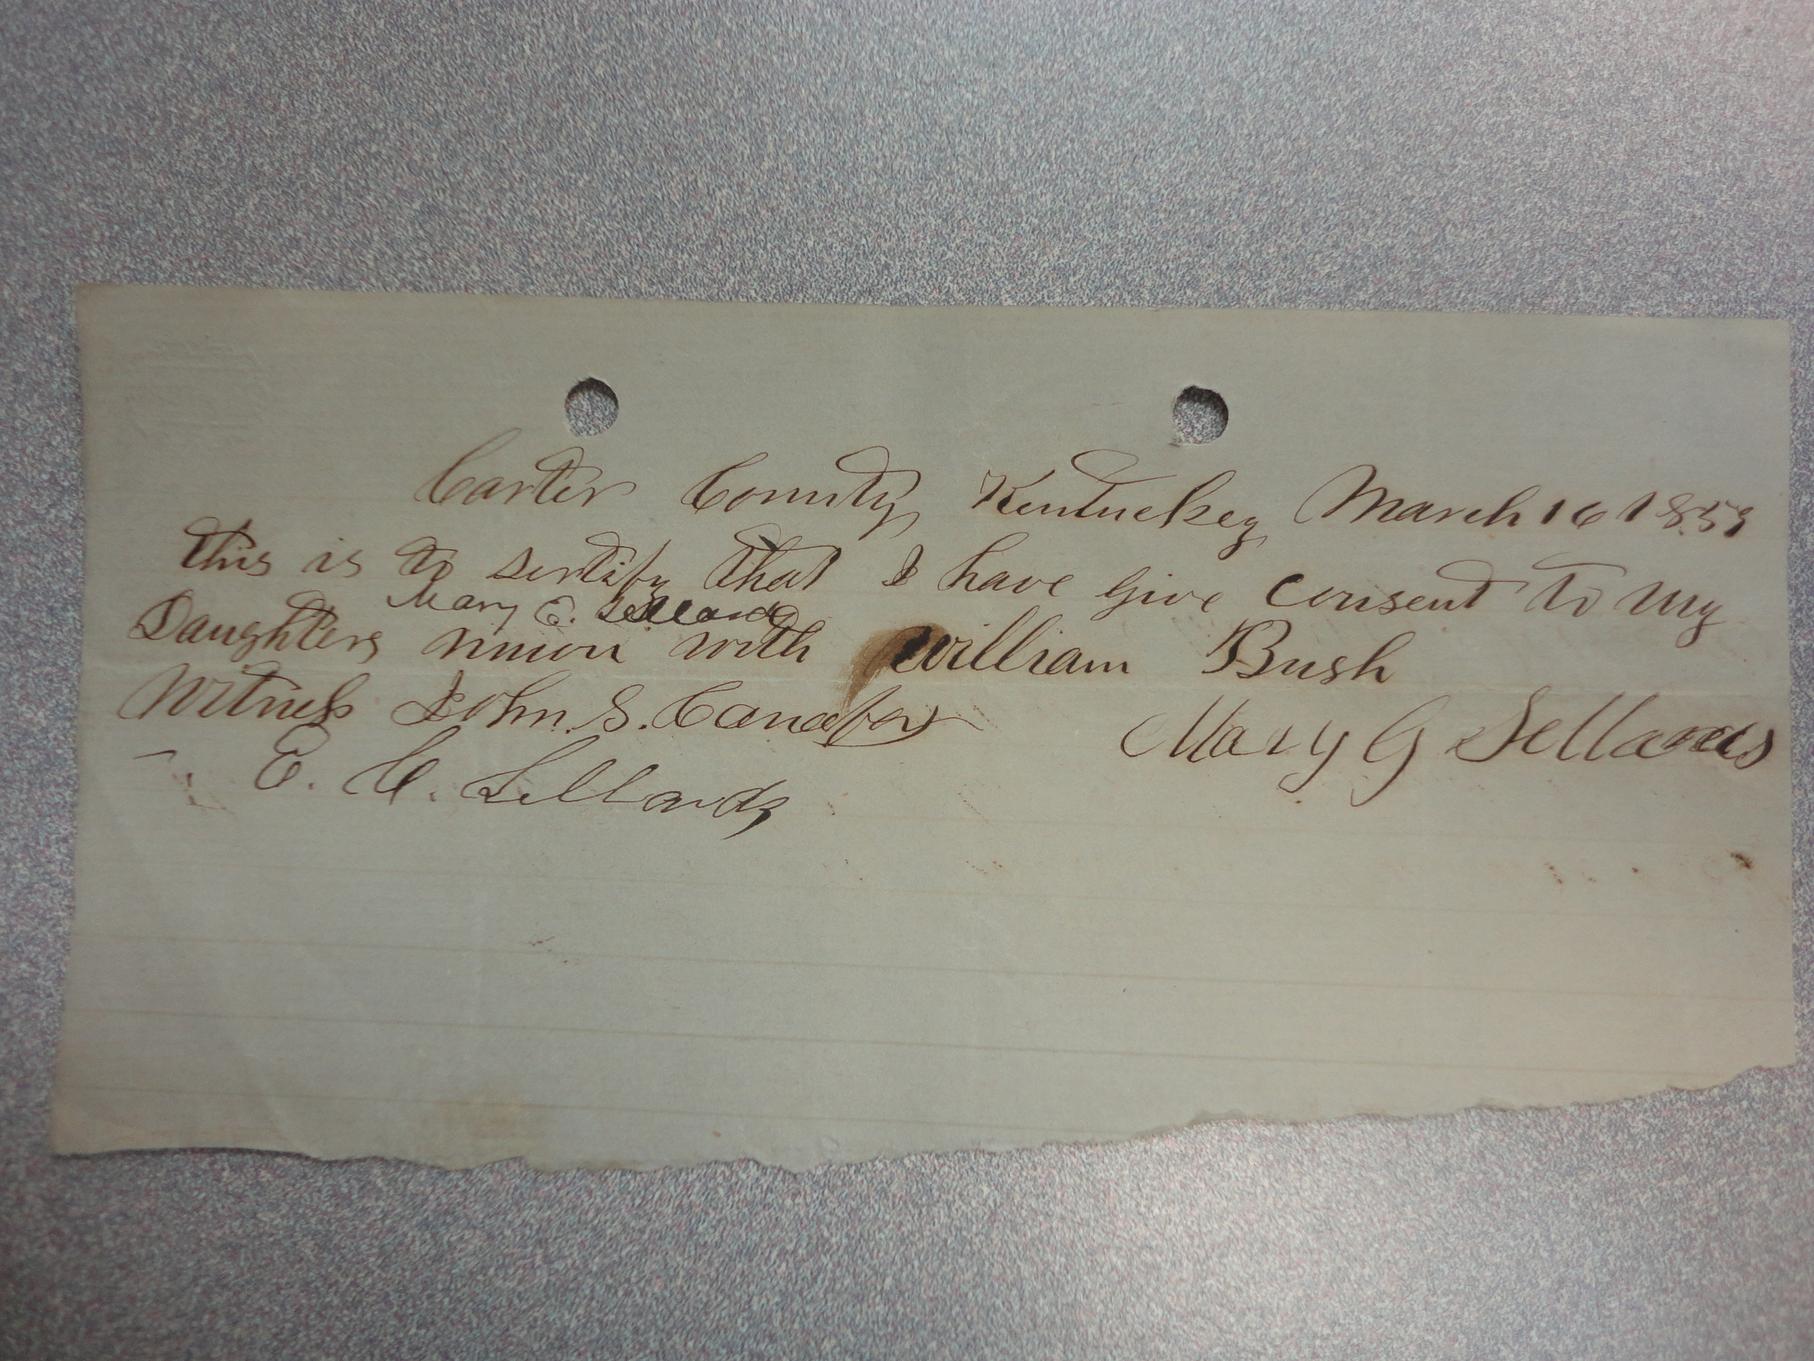 Carter County Kentuckey March 16 1859
this is to sertify that I have give consent to my
Mary E. Sellards
Daughters union with William Bush
Witness John S. Mary G Sellards
E. C. Sellards